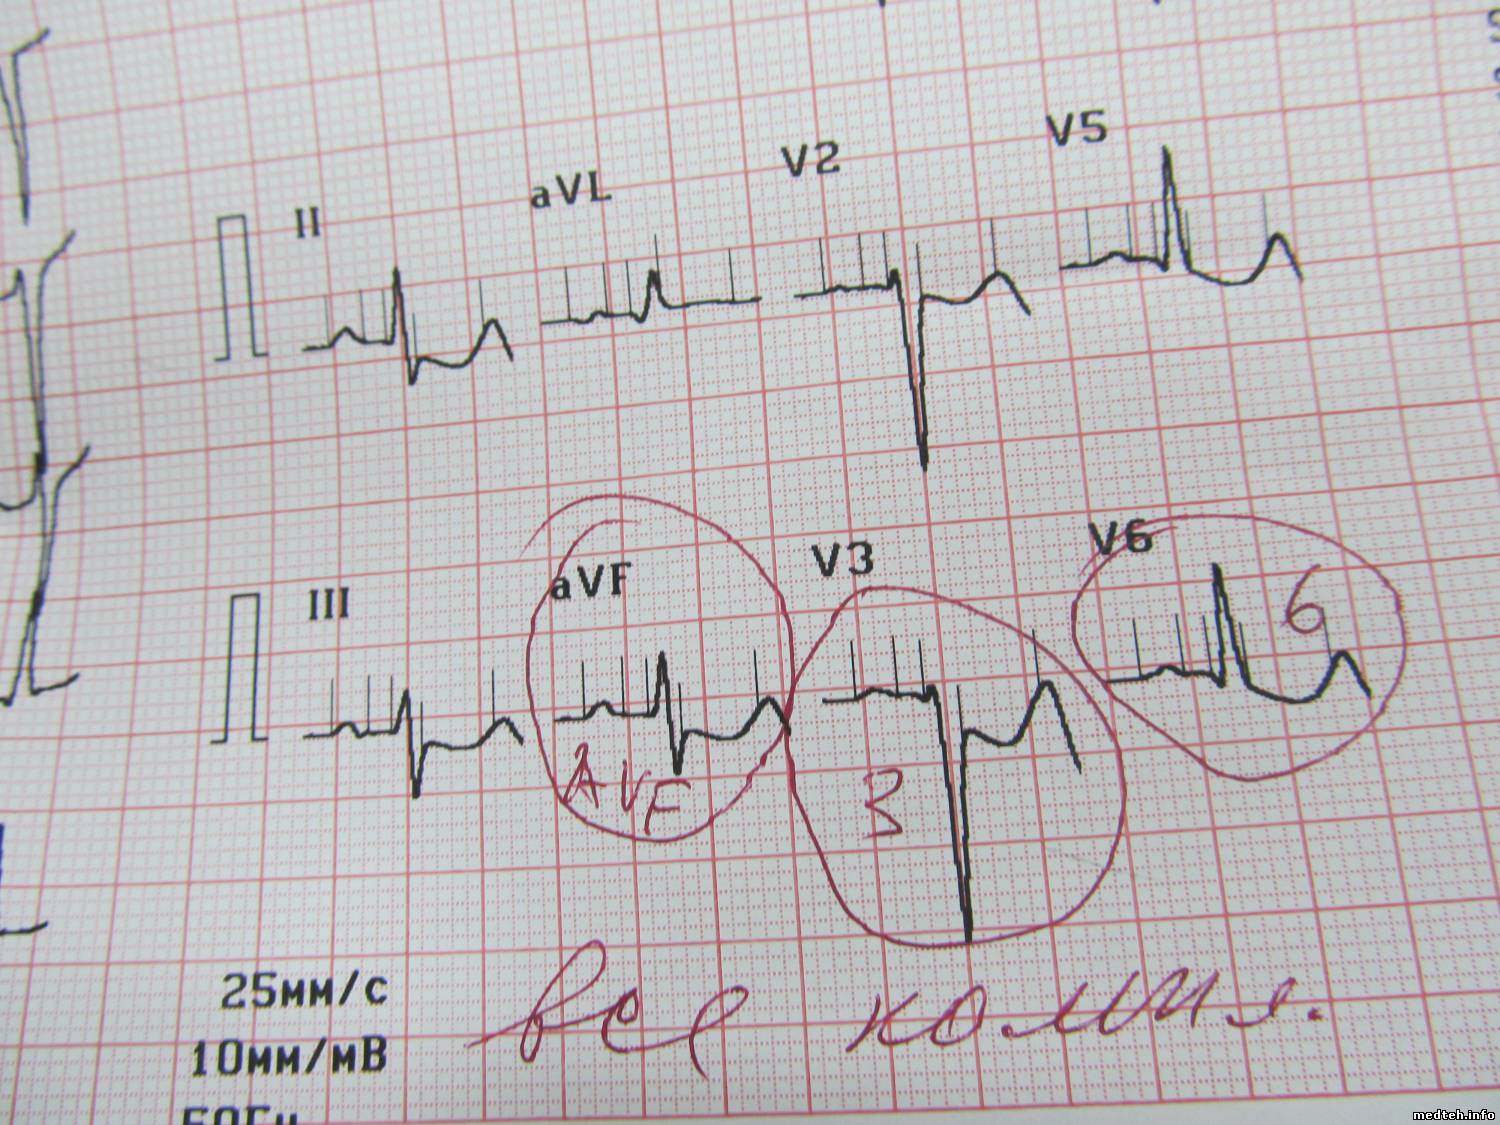 II aVL V2 V5
III aVF V3 V6
AVF 3 6
25мм/с
10мм/мВ
50Гц
все компл.
medteh.info